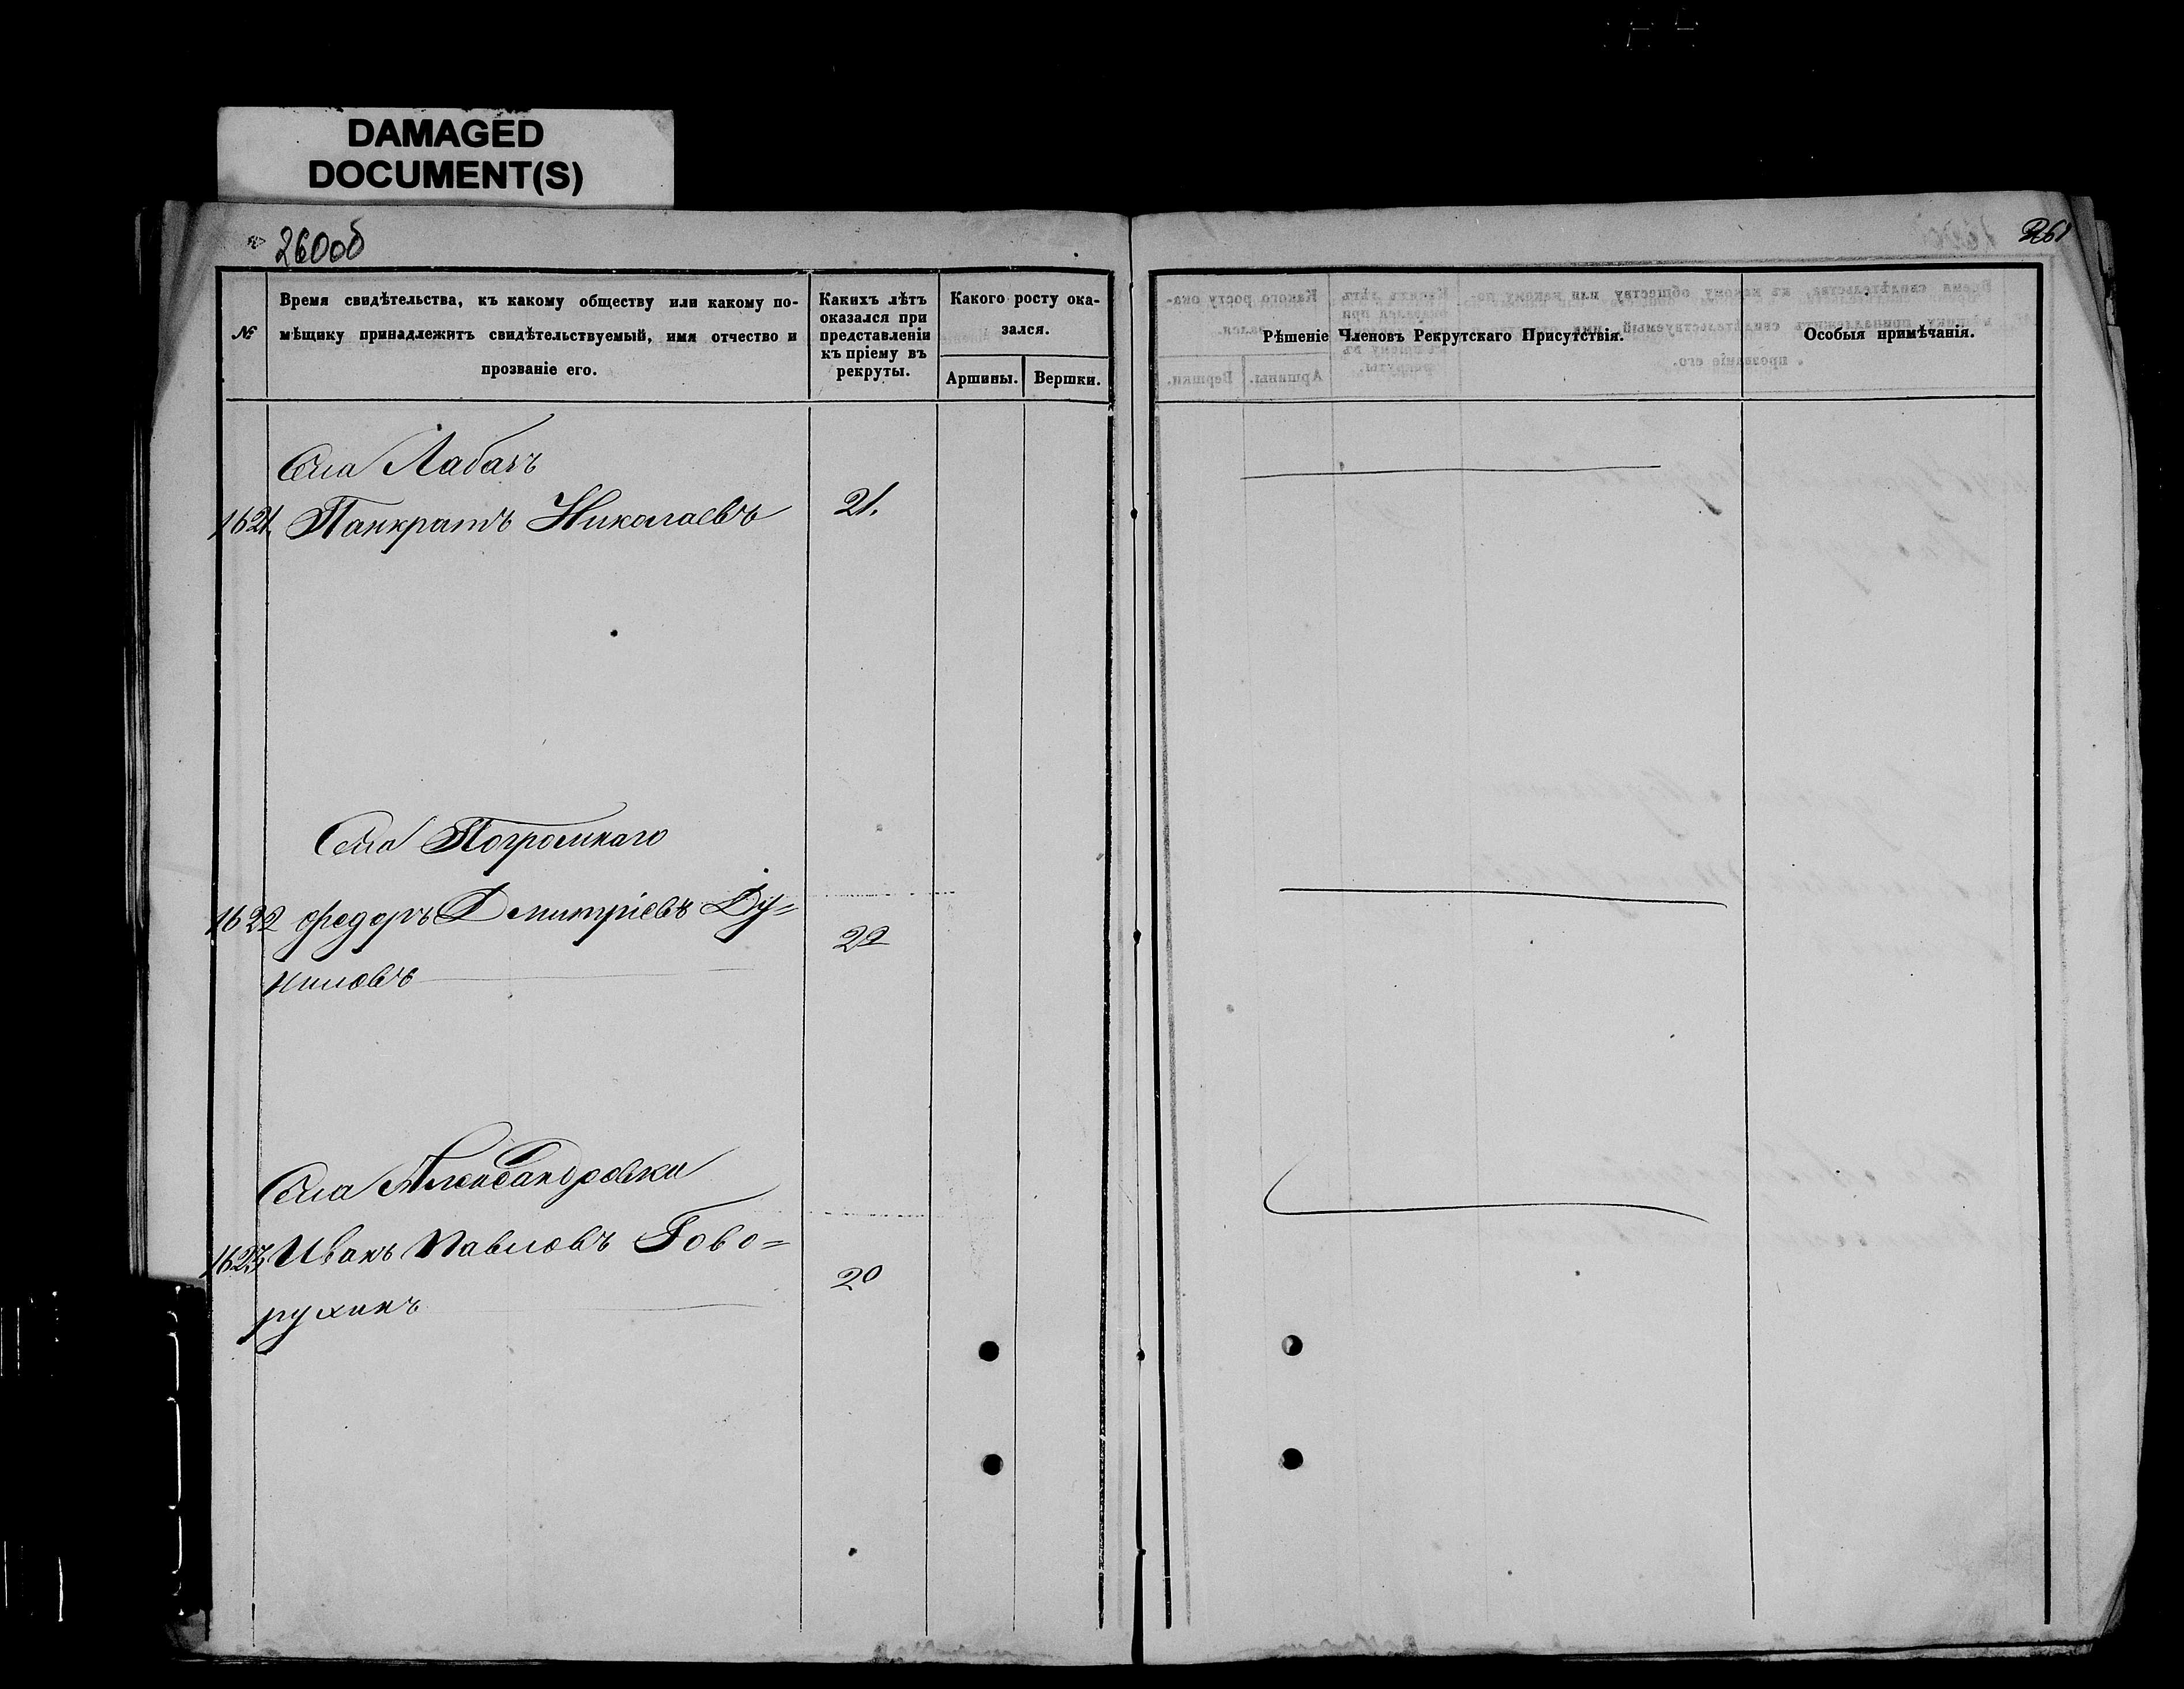 DAMAGED
DOCUMENT(S)
260об
261
№
Время свидѣтельства, къ какому обществу или какому по-
мѣщику принадлежитъ свидѣтельствуемый, имя отчество и
прозваніе его.
Какихъ лѣтъ
оказался при
представленіи
къ пріему въ
рекруты.
Какого росту ока-
зался.
Аршины.
Вершки.
Рѣшеніе Членовъ Рекрутскаго Присутствія.
Особыя примѣчанія.
Села Лабазъ
1621. Панкратъ Николаевъ 21.
Села Погромнаго
1622 Федоръ Дмитріевъ Ду=
22
ниловъ
Села Александровки
1623 Иванъ Павловъ Гово=
20
рухинъ